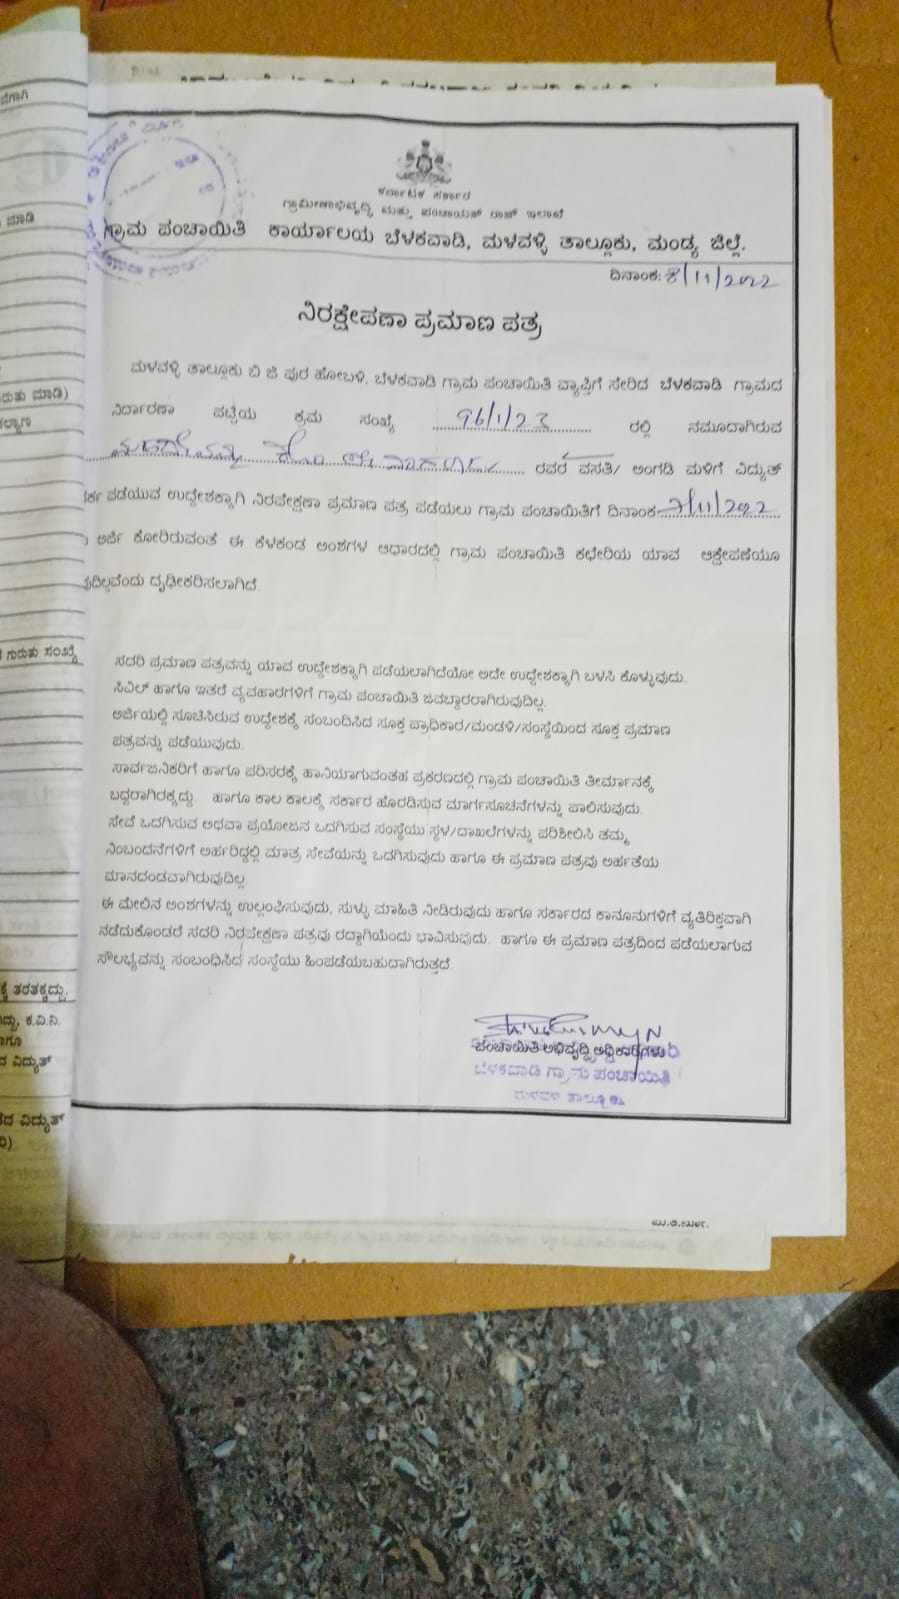 ಬೆಗಾಗಿ
ಮಾಡಿ
ಗುರುತು ಮಾಡಿ)
ಕಲ್ಯಾಣ
ಗುರುತು ಸಂಖ್ಯೆ
ಕ್ಕೆ ತರತಕ್ಕದ್ದು.
ಕ.ವಿ.ನಿ.
ಹಾಗೂ
ದ ವಿದ್ಯುತ್
ವಿದ್ಯುತ್
ಕರ್ನಾಟಕ ಸರ್ಕಾರ
ಗ್ರಾಮೀಣಾಭಿವೃದ್ಧಿ ಮತ್ತು ಪಂಚಾಯತ್ ರಾಜ್ ಇಲಾಖೆ
ಗ್ರಾಮ ಪಂಚಾಯಿತಿ ಕಾರ್ಯಾಲಯ ಬೆಳಕವಾಡಿ, ಮಳವಳ್ಳಿ ತಾಲ್ಲೂಕು, ಮಂಡ್ಯ ಜಿಲ್ಲೆ.
ದಿನಾಂಕ: 8/11/2022
ನಿರಕ್ಷೇಪಣಾ ಪ್ರಮಾಣ ಪತ್ರ
ಮಳವಳ್ಳಿ ತಾಲ್ಲೂಕು ಬಿ ಜಿ ಪುರ ಹೋಬಳಿ, ಬೆಳಕವಾಡಿ ಗ್ರಾಮ ಪಂಚಾಯಿತಿ ವ್ಯಾಪ್ತಿಗೆ ಸೇರಿದ ಬೆಳಕವಾಡಿ ಗ್ರಾಮದ
ನಿರ್ದಾರಣಾ ಪಟ್ಟಿಯ ಕ್ರಮ ಸಂಖ್ಯೆ 96/1/23 ರಲ್ಲಿ ನಮೂದಾಗಿರುವ
ರವರ ವಸತಿ/ ಅಂಗಡಿ ಮಳಿಗೆ ವಿದ್ಯುತ್
ಪಡೆಯುವ ಉದ್ದೇಶಕ್ಕಾಗಿ ನಿರಪೇಕ್ಷಣಾ ಪ್ರಮಾಣ ಪತ್ರ ಪಡೆಯಲು ಗ್ರಾಮ ಪಂಚಾಯಿತಿಗೆ ದಿನಾಂಕ 7/11/2022
ಅರ್ಜಿ ಕೋರಿರುವಂತೆ ಈ ಕೆಳಕಂಡ ಅಂಶಗಳ ಆಧಾರದಲ್ಲಿ ಗ್ರಾಮ ಪಂಚಾಯಿತಿ ಕಛೇರಿಯ ಯಾವ ಆಕ್ಷೇಪಣೆಯೂ
ವುದಿಲ್ಲವೆಂದು ದೃಢೀಕರಿಸಲಾಗಿದೆ.
ಸದರಿ ಪ್ರಮಾಣ ಪತ್ರವನ್ನು ಯಾವ ಉದ್ದೇಶಕ್ಕಾಗಿ ಪಡೆಯಲಾಗಿದೆಯೋ ಅದೇ ಉದ್ದೇಶಕ್ಕಾಗಿ ಬಳಸಿ ಕೊಳ್ಳುವುದು.
ಸಿವಿಲ್ ಹಾಗೂ ಇತರೆ ವ್ಯವಹಾರಗಳಿಗೆ ಗ್ರಾಮ ಪಂಚಾಯಿತಿ ಜವಬ್ದಾರರಾಗಿರುವುದಿಲ್ಲ.
ಅರ್ಜಿಯಲ್ಲಿ ಸೂಚಿಸಿರುವ ಉದ್ದೇಶಕ್ಕೆ ಸಂಬಂದಿಸಿದ ಸೂಕ್ತ ಪ್ರಾಧಿಕಾರ/ಮಂಡಳಿ/ಸಂಸ್ಥೆಯಿಂದ ಸೂಕ್ತ ಪ್ರಮಾಣ
ಪತ್ರವನ್ನು ಪಡೆಯುವುದು.
ಸಾರ್ವಜನಿಕರಿಗೆ ಹಾಗೂ ಪರಿಸರಕ್ಕೆ ಹಾನಿಯಾಗುವಂತಹ ಪ್ರಕರಣದಲ್ಲಿ ಗ್ರಾಮ ಪಂಚಾಯಿತಿ ತೀರ್ಮಾನಕ್ಕೆ
ಬದ್ದರಾಗಿರಕ್ಕದ್ದು. ಹಾಗೂ ಕಾಲ ಕಾಲಕ್ಕೆ ಸರ್ಕಾರ ಹೊರಡಿಸುವ ಮಾರ್ಗಸೂಚನೆಗಳನ್ನು ಪಾಲಿಸುವುದು.
ಸೇವೆ ಒದಗಿಸುವ ಅಥವಾ ಪ್ರಯೋಜನ ಒದಗಿಸುವ ಸಂಸ್ಥೆಯು ಸ್ಥಳ/ದಾಖಲೆಗಳನ್ನು ಪರಿಶೀಲಿಸಿ ತಮ್ಮ
ನಿಂಬಂದನೆಗಳಿಗೆ ಅರ್ಹರಿದ್ದಲ್ಲಿ ಮಾತ್ರ ಸೇವೆಯನ್ನು ಒದಗಿಸುವುದು ಹಾಗೂ ಈ ಪ್ರಮಾಣ ಪತ್ರವು ಅರ್ಹತೆಯ
ಮಾನದಂಡವಾಗಿರುವುದಿಲ್ಲ.
ಈ ಮೇಲಿನ ಅಂಶಗಳನ್ನು ಉಲ್ಲಂಘಿಸುವುದು, ಸುಳ್ಳು ಮಾಹಿತಿ ನೀಡಿರುವುದು ಹಾಗೂ ಸರ್ಕಾರದ ಕಾನೂನುಗಳಿಗೆ ವ್ಯತಿರಿಕ್ತವಾಗಿ
ನಡೆದುಕೊಂಡರೆ ಸದರಿ ನಿರಪೇಕ್ಷಣಾ ಪತ್ರವು ರದ್ದಾಗಿಯೆಂದು ಭಾವಿಸುವುದು. ಹಾಗೂ ಈ ಪ್ರಮಾಣ ಪತ್ರದಿಂದ ಪಡೆಯಲಾಗುವ
ಸೌಲಭ್ಯವನ್ನು ಸಂಬಂಧಿಸಿದ ಸಂಸ್ಥೆಯು ಹಿಂಪಡೆಯಬಹುದಾಗಿರುತ್ತದೆ.
ಪಂಚಾಯಿತಿ ಅಭಿವೃದ್ಧಿ ಅಧಿಕಾರಿಗಳು
ಬೆಳಕವಾಡಿ ಗ್ರಾಮ ಪಂಚಾಯಿತಿ
ಮಳವಳ್ಳಿ ತಾಲ್ಲೂಕು